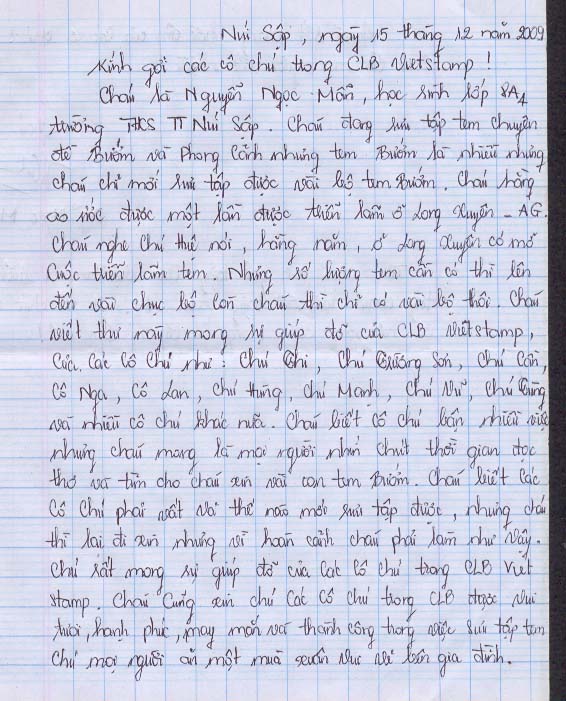 Núi Sập, ngày 15 tháng 12 năm 2009
Kính gởi các cô chú trong CLB Vietstamp!
Cháu là Nguyễn Ngọc Mẫn, học sinh lớp 8A4
trường THCS TT Núi Sập. Cháu đang sưu tập tem chuyên
đề Bướm và Phong cảnh nhưng tem Bướm là nhiều nhưng
cháu chỉ mới sưu tập được vài bộ tem Bướm. Cháu hằng
ao ước được một lần được triển lãm ở Long Xuyên - AG.
Cháu nghe chú thế nói, hằng năm, ở Long Xuyên có mở
cuộc triển lãm tem. Nhưng số lượng tem cần có thì lên
đến vài chục bộ còn cháu thì chỉ có vài bộ thôi. Cháu
viết thư này mong sự giúp đỡ của CLB Vietstamp,
của các cô chú như: chú Chi, chú Trường Sơn, chú
Cô Nga, Cô Lan, chú Hưng, chú Mạnh, chú Vũ, chú
và nhiều cô chú khác nữa. Cháu biết cô chú bận nhiều việc
nhưng cháu mong là mọi người nhín chút thời gian đọc
thơ và tìm cho cháu xin vài con tem Bướm. Cháu biết các
cô chú phải vất vả thế nào mới sưu tập được, nhưng cháu
thì lại đi xin nhưng vì hoàn cảnh cháu phải làm như vậy.
Chú rất mong sự giúp đỡ của các cô chú trong CLB Viet
stamp. Cháu cũng xin chú các cô chú trong CLB được vui
tươi, hạnh phúc, may mắn và thành công trong việc sưu tập tem
chú mọi người ăn một mùa xuân vui vẻ bên gia đình.